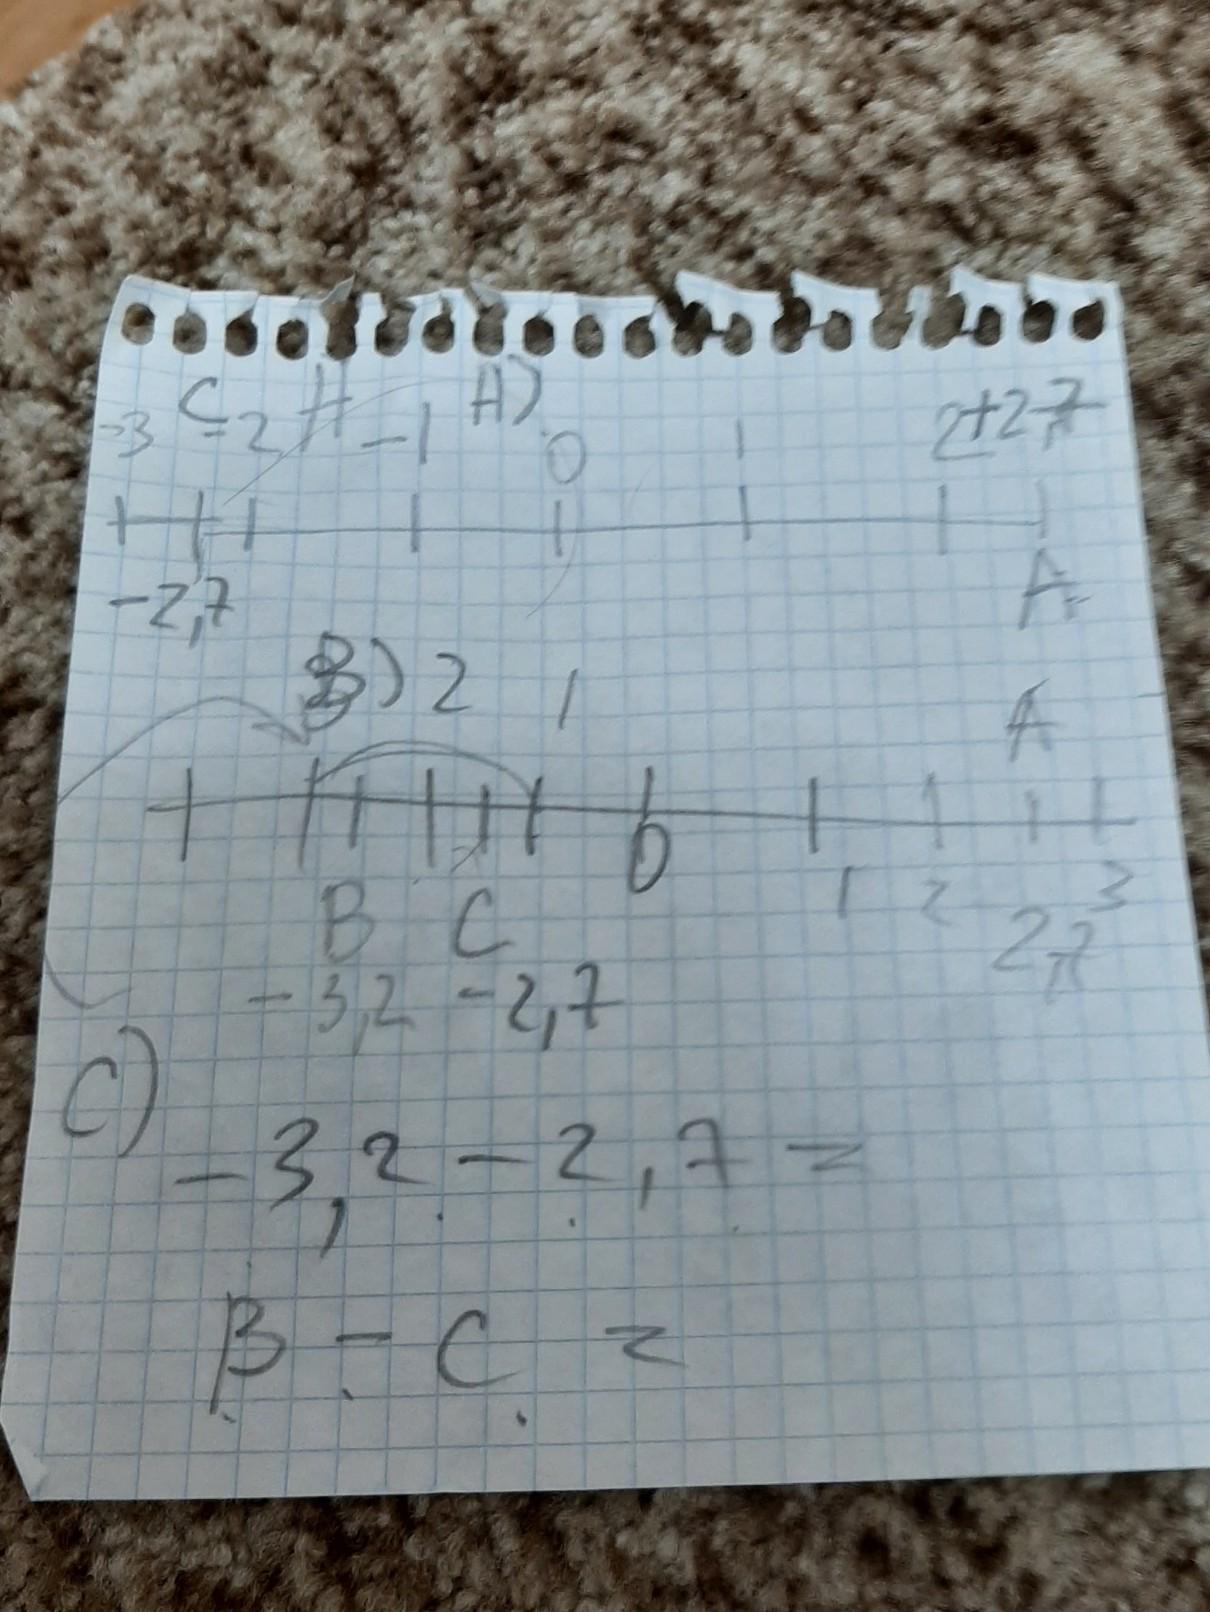 C A A)
-3 -2 -1 0 1 2+2,7
-2,7 A
B) 2 1 A
0 1 2 3
B C 2,7
-3,2 -2,7
C)
-3,2 - 2,7 =
B - C =